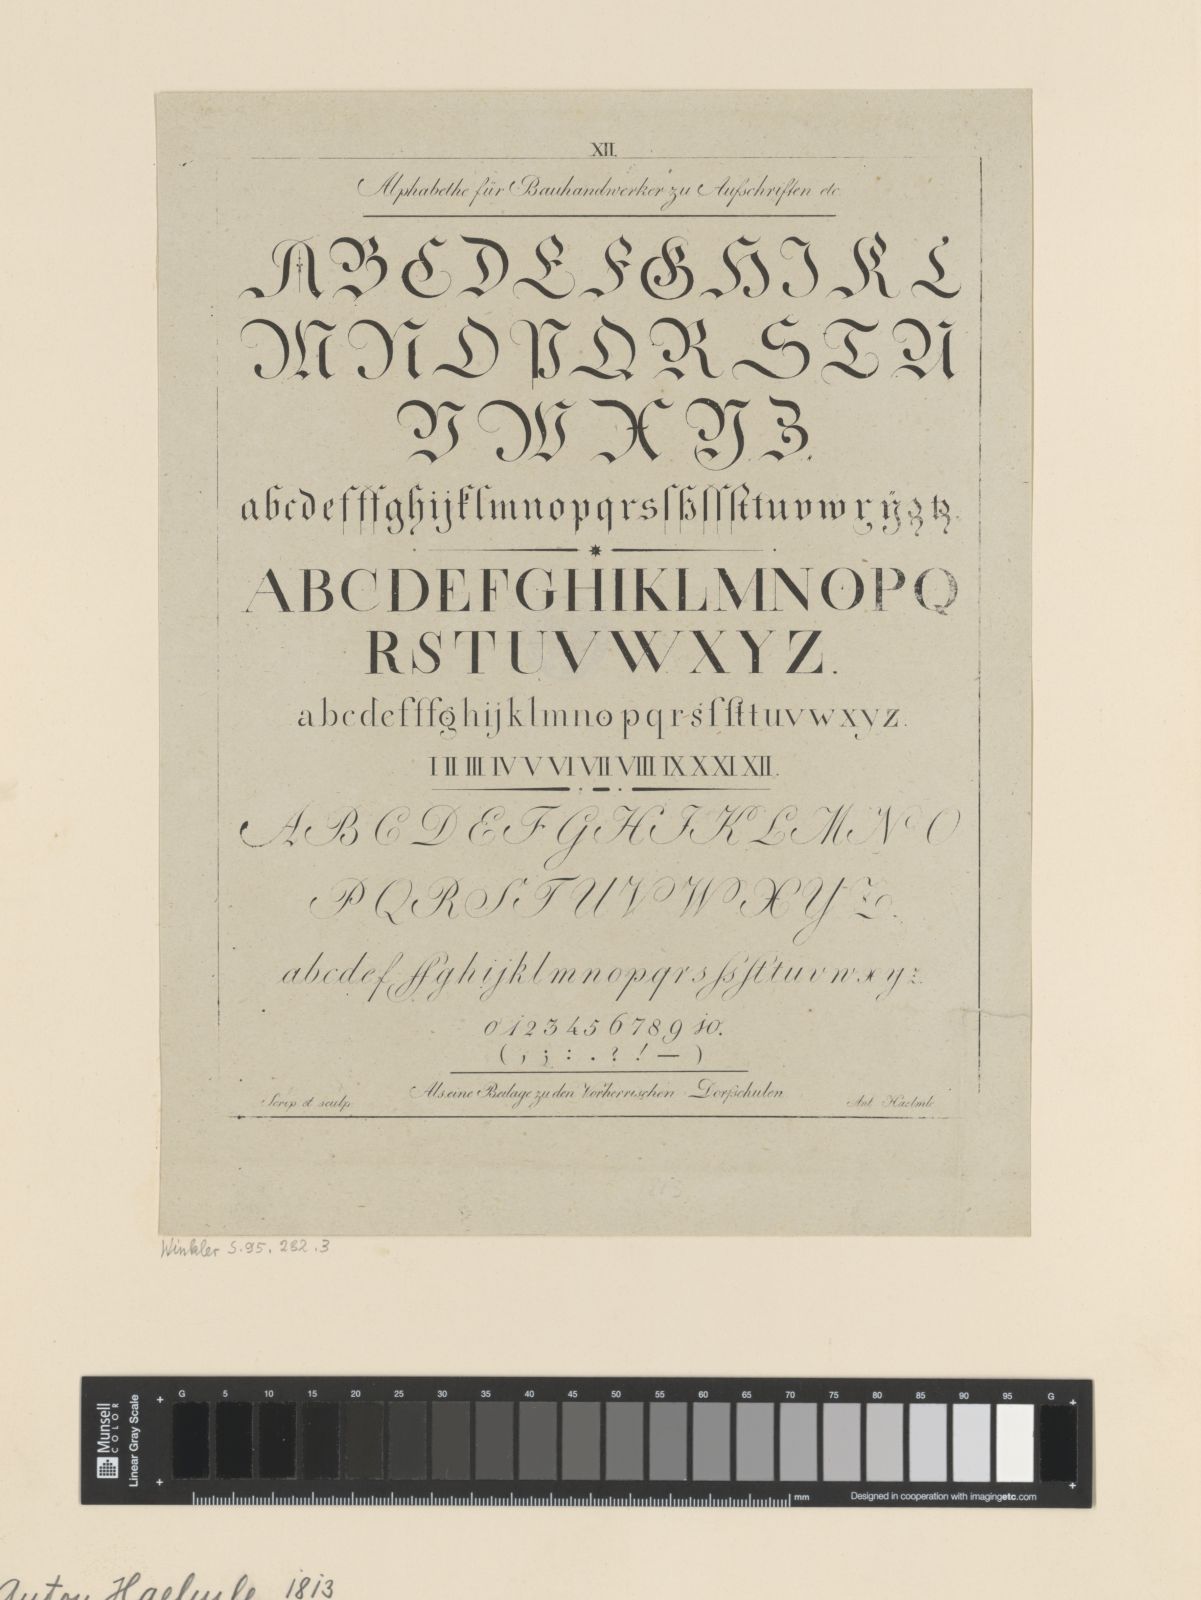 XII.
Alphabethe für Bauhandwerker zu Aufschriften etc.
A B C D E F G H I K L
M N O P Q R S T U
V W X Y Z.
abcdefffghijklmnopqrsſßſſſttuvwxÿz tz.
ABCDEFGHIKLMNOPQ
RSTUVWXYZ.
abcdefffghijklmnopqrsſſttuvwxyz.
I II III IV V VI VII VIII IX X XI XII.
A B C D E F G H I K L M N O
P Q R S T U V W X Y Z.
abcdefffghijklmnopqrsſsſttuvwxyz.
0 1 2 3 4 5 6 7 8 9 10.
( , ; : . ? ! — )
Als eine Beilage zu den Vorherrischen Dorfschulen
Scrip et sculp. Ant Haelmle
Winkler S. 95. 232.3
Munsell
COLOR
Linear Gray Scale
G 5 10 15 20 25 30 35 40 45 50 55 60 65 70 75 80 85 90 95 G
mm Designed in cooperation with imagingetc.com
Anton Haelmle 1813